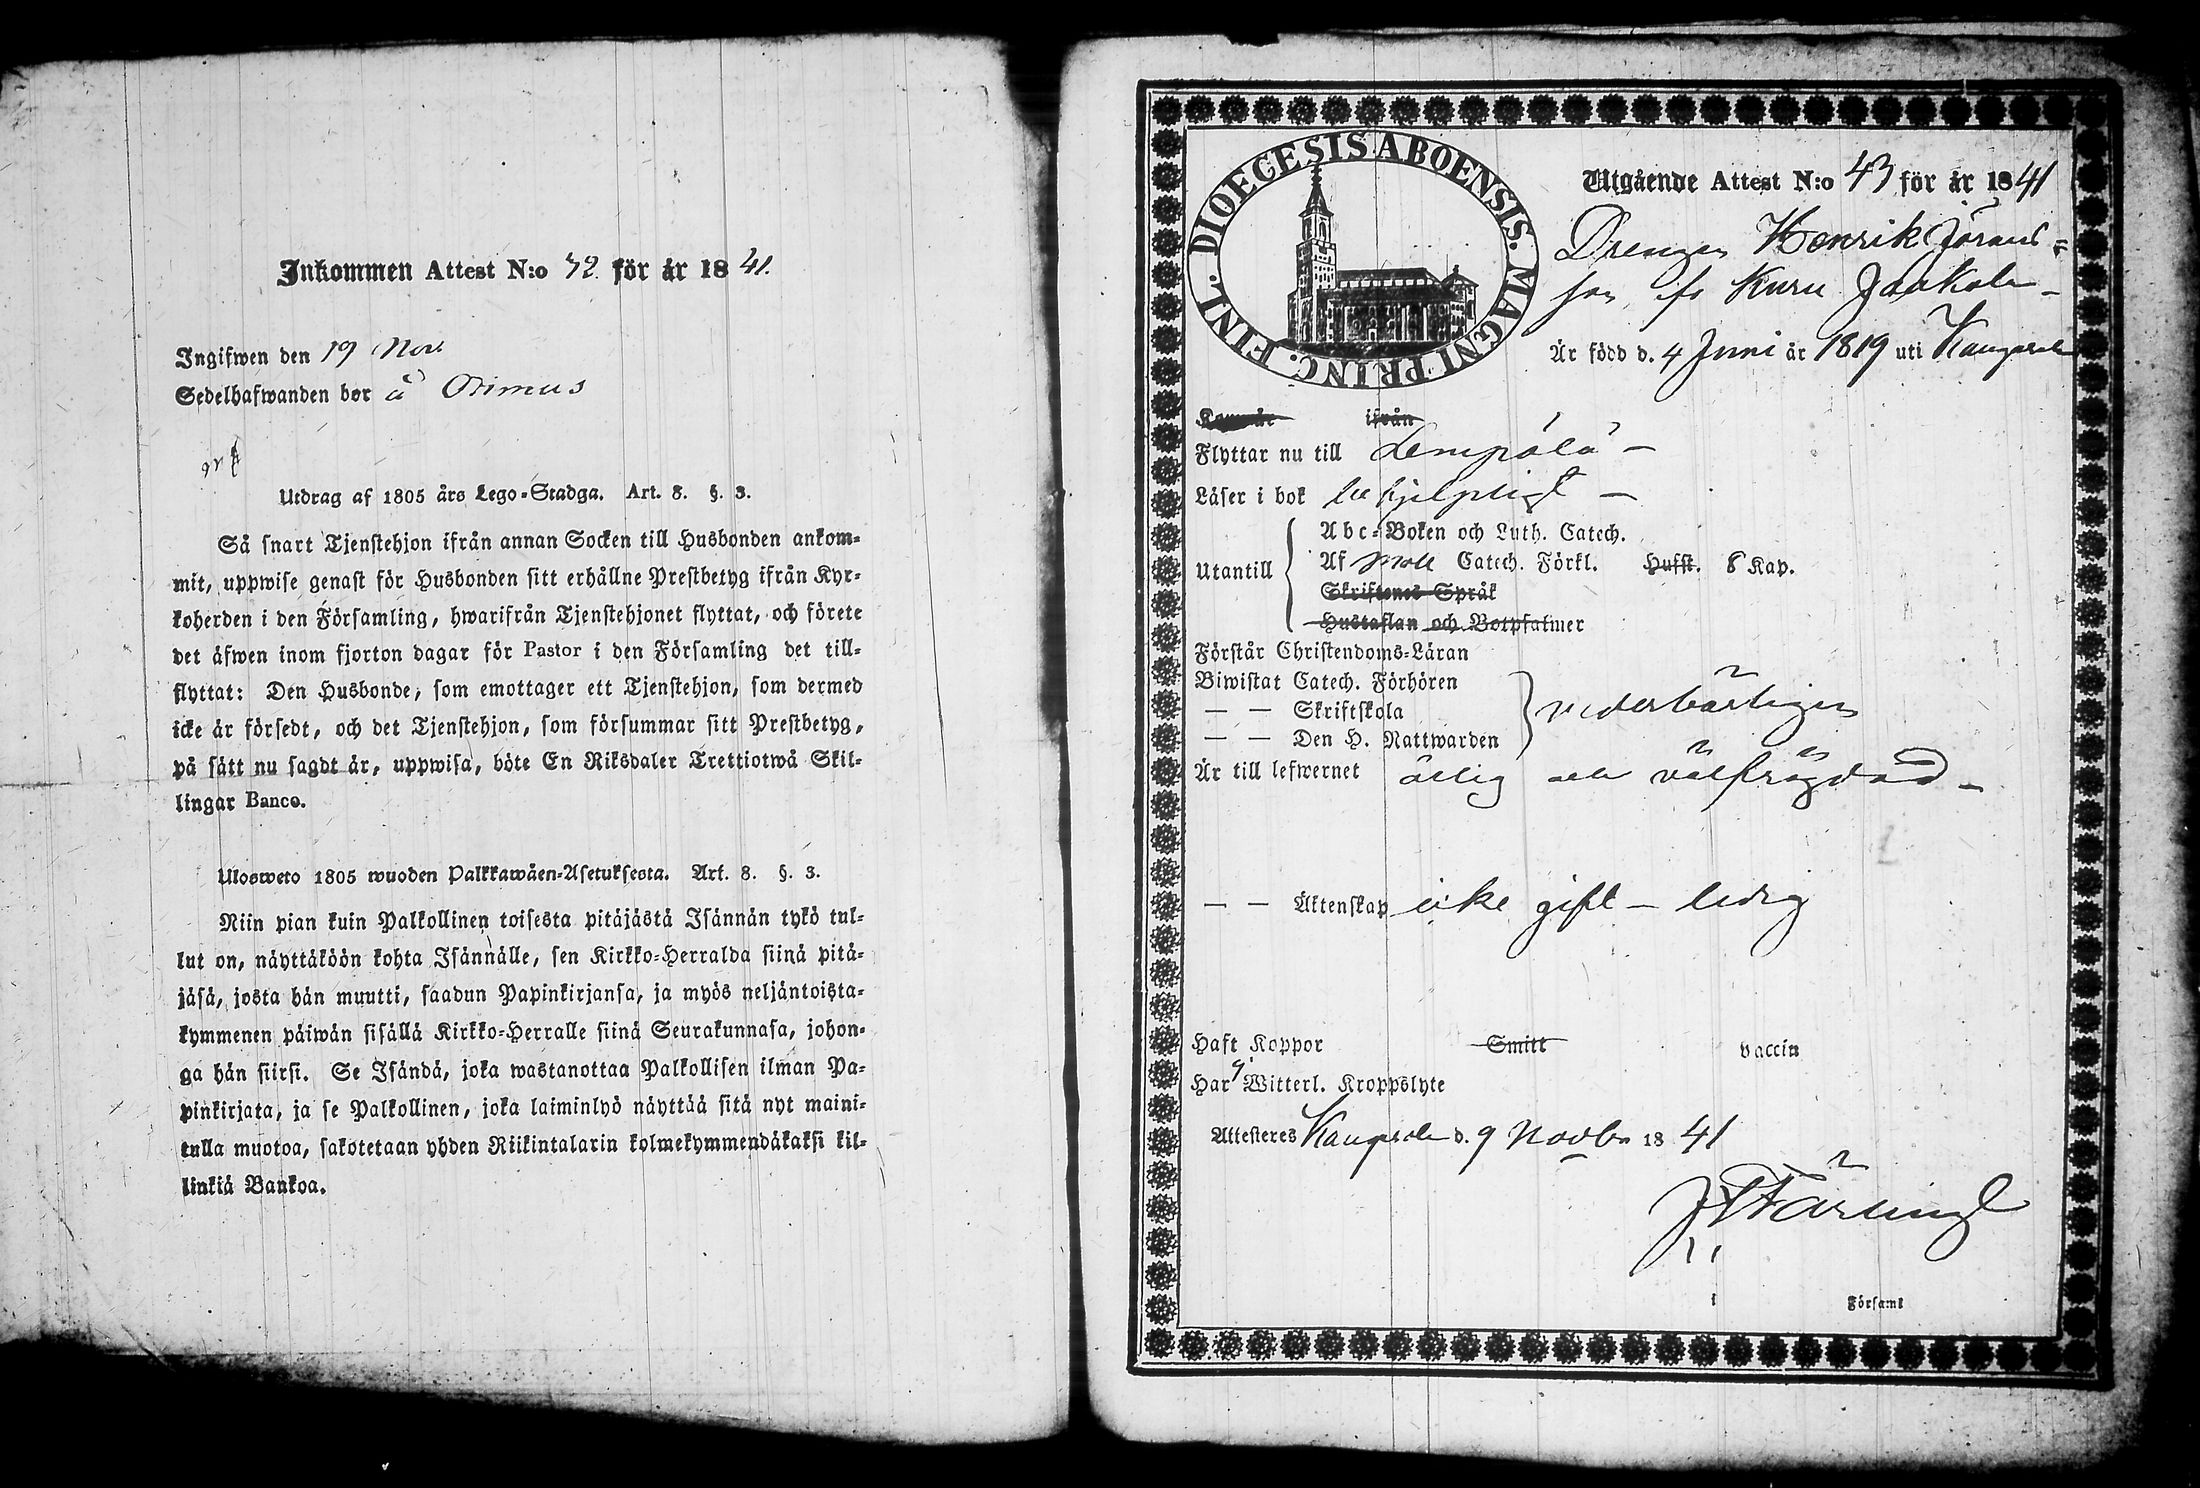 Inkommen Attest N:o 42 för år 1841.
Ingifwen den 19 Nov
Sedelhafwanden bor å
Utdrag af 1805 års Lego-Stadga. Art. 8. §. 3.
Så snart Tjenstehjon ifrån annan Socken till Husbonden ankom-
mit, uppwise genast för Husbonden sitt erhållne Prestbetyg ifrån Kyr-
koherden i den Församling, hwarifrån Tjenstehjonet flyttat, och förete
det äfwen inom fjorton dagar för Pastor i den Församling det till-
flyttat: Den Husbonde, som emottager ett Tjenstehjon, som dermed
icke är försedt, och det Tjenstehjon, som försummar sitt Prestbetyg,
på sätt nu sagdt är, uppwisa, böte En Riksdaler Trettiotwå Skil-
lingar Banco.
Ulosweto 1805 wuoden Palkkawäen-Asetuksesta. Art. 8. §. 3.
Niin pian kuin Palkollinen toisesta pitäjästä Isännän tykö tul-
lut on, näyttäköön kohta Isännälle, sen Kirkko-Herralda siinä pitä-
jäsä, josta hän muutti, saadun Papinkirjansa, ja myös neljäntoista-
kymmenen päiwän sisällä Kirkko-Herralle siinä Seurakunnasa, johon-
ga hän siirsi. Se Isändä, joka wastanottaa Palkollisen ilman Pa-
pinkirjata, ja se Palkollinen, joka laiminlyö näyttää sitä nyt maini-
tulla muotoa, sakotetaan yhden Riikintalarin kolmekymmendäkaksi kil-
linkiä Bankoa.
DIOECESIS ABOENSIS. MAGNI PRINC. FINL.
Utgående Attest N:o 43 för år 1841
Drengen Henrik Jörans-
son, fr Kuru Jaakola
Är född d. 4 Juni år 1819 uti Kangasala
Kom år ifrån
Flyttar nu till Lempälä
Läser i bok behjelpligt
Utantill
Abc-Boken och Luth. Catech.
Af Catech. Förkl. Hufst. 8 Kap.
Skriftenes Språk
Hustaflan och Botpsalmer
Förstår Christendoms-Läran
Biwistat Catech. Förhören
— — Skriftskola
— — Den H. Nattwarden
vederbörligen
Är till lefwernet ärlig och välfrägdad
— — Äktenskap icke gift – ledig
Haft Koppor Smitt vaccin
Har Witterl. Kroppslyte
Attesteres Kangasala d. 9 Novbr 1841
i Församl